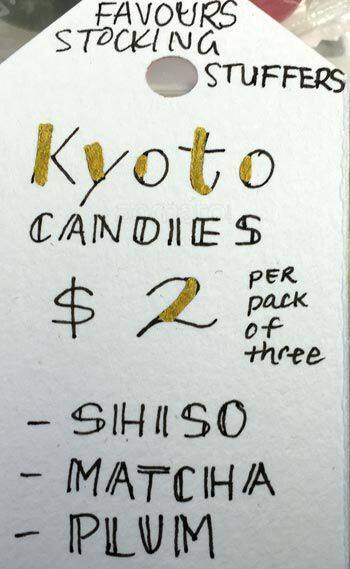 FAVOURS
STOCKING
STUFFERS
Kyoto
CANDIES
$ 2 PER
pack
of
three
- SHISO
- MATCHA
- PLUM